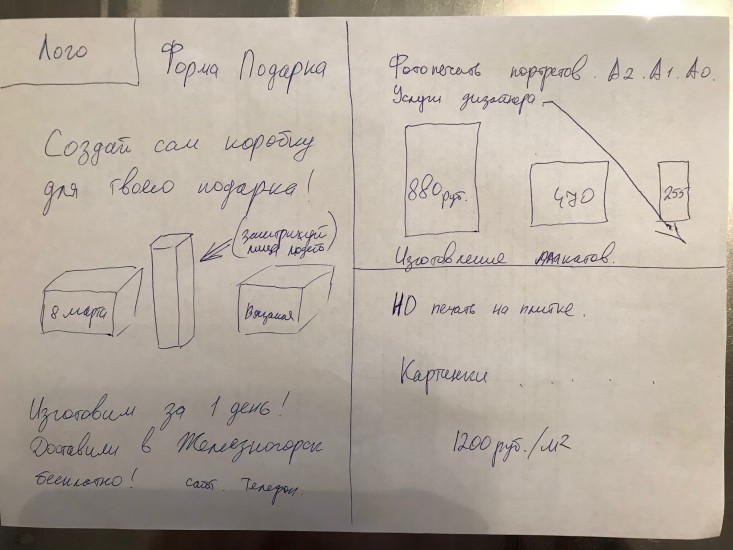 Лого
Форма Подарка
Создай сам коробку
для твоего подарка!
(заштрихуй
лица людей)
8 марта
Изготовим за 1 день!
Доставили в Железногорск
бесплатно! сайт. Телефон.
Фотопечать портретов. А2. А1. А0.
Услуги дизайнера
880руб.
470
255
Изготовление плакатов.
HD печать на плитке.
Картинки . . . . . . .
1200 руб./м2